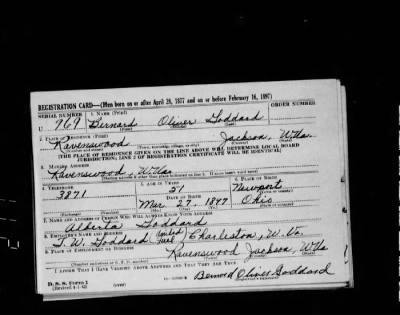 REGISTRATION CARD—(Men born on or after April 28, 1877 and on or before February 16, 1897)
SERIAL NUMBER 1. NAME (Print) ORDER NUMBER
U 969 Bernard Oliver Goddard
(First) (Middle) (Last)
2. PLACE OF RESIDENCE (Print)
Ravenswood Jackson, W.Va.
(Number and street) (Town, township, village, or city) (County) (State)
[THE PLACE OF RESIDENCE GIVEN ON THE LINE ABOVE WILL DETERMINE LOCAL BOARD
JURISDICTION; LINE 2 OF REGISTRATION CERTIFICATE WILL BE IDENTICAL]
3. MAILING ADDRESS
Ravenswood, W.Va.
[Mailing address if other than place indicated on line 2. If same insert word same]
4. TELEPHONE 5. AGE IN YEARS 6. PLACE OF BIRTH
3871 Newport
DATE OF BIRTH
Mar 27, 1897 Ohio
(Mo.) (Day) (Yr.) (State or country)
7. NAME AND ADDRESS OF PERSON WHO WILL ALWAYS KNOW YOUR ADDRESS
Alberta Goddard
8. EMPLOYER'S NAME AND ADDRESS
Goddard Charleston, W. Va.
9. PLACE OF EMPLOYMENT OR BUSINESS
Ravenswood Jackson, W.Va.
(Number and street or R. F. D. number) (Town) (County) (State)
I AFFIRM THAT I HAVE VERIFIED ABOVE ANSWERS AND THAT THEY ARE TRUE.
D. S. S. Form 1
(Revised 4-1-42) (over) Bernard Oliver Goddard